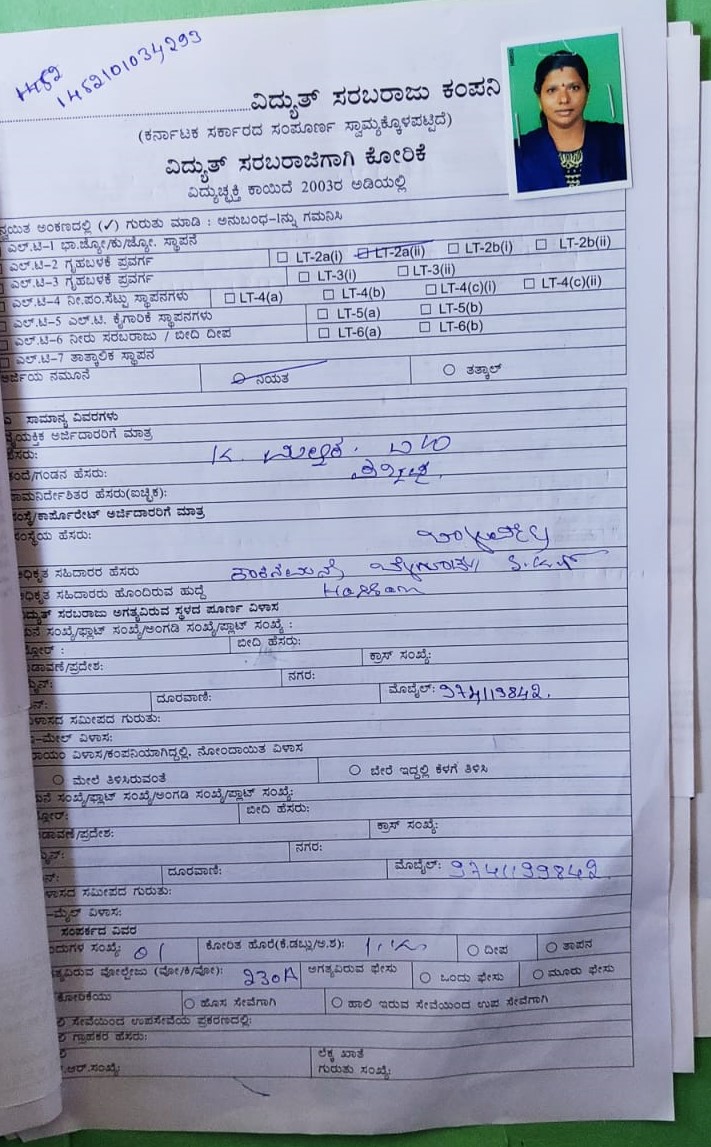 1462
1462101034293
ವಿದ್ಯುತ್ ಸರಬರಾಜು ಕಂಪನಿ
(ಕರ್ನಾಟಕ ಸರ್ಕಾರದ ಸಂಪೂರ್ಣ ಸ್ವಾಮ್ಯಕ್ಕೊಳಪಟ್ಟಿದೆ)
ವಿದ್ಯುತ್ ಸರಬರಾಜಿಗಾಗಿ ಕೋರಿಕೆ
ವಿದ್ಯುಚ್ಛಕ್ತಿ ಕಾಯಿದೆ 2003ರ ಅಡಿಯಲ್ಲಿ
ನ್ವಯಿತ ಅಂಕಣದಲ್ಲಿ (✓) ಗುರುತು ಮಾಡಿ : ಅನುಬಂಧ-1ನ್ನು ಗಮನಿಸಿ
ಎಲ್.ಟಿ-1 ಭಾ.ಜ್ಯೋ/ಕು/ಜ್ಯೋ. ಸ್ಥಾಪನೆ
ಎಲ್.ಟಿ-2 ಗೃಹಬಳಕೆ ಪ್ರವರ್ಗ LT-2a(i) LT-2a(ii) LT-2b(i) LT-2b(ii)
ಎಲ್.ಟಿ-3 ಗೃಹಬಳಕೆ ಪ್ರವರ್ಗ LT-3(i) LT-3(ii)
ಎಲ್.ಟಿ-4 ನೀ.ಪಂ.ಸೆಟ್ಟು ಸ್ಥಾಪನಗಳು LT-4(a) LT-4(b) LT-4(c)(i) LT-4(c)(ii)
ಎಲ್.ಟಿ-5 ಎಲ್.ಟಿ. ಕೈಗಾರಿಕೆ ಸ್ಥಾಪನಗಳು LT-5(a) LT-5(b)
ಎಲ್.ಟಿ-6 ನೀರು ಸರಬರಾಜು / ಬೀದಿ ದೀಪ LT-6(a) LT-6(b)
ಎಲ್.ಟಿ-7 ತಾತ್ಕಾಲಿಕ ಸ್ಥಾಪನ
ಅರ್ಜಿಯ ನಮೂನೆ ನಿಯತ ತತ್ಕಾಲ್
ಸಾಮಾನ್ಯ ವಿವರಗಳು
ವೈಯಕ್ತಿಕ ಅರ್ಜಿದಾರರಿಗೆ ಮಾತ್ರ
ಹೆಸರು: K.
ತಂದೆ/ಗಂಡನ ಹೆಸರು:
ನಾಮನಿರ್ದೇಶಿತರ ಹೆಸರು(ಐಚ್ಛಿಕ):
ಸಂಸ್ಥೆ/ಕಾರ್ಪೊರೇಟ್ ಅರ್ಜಿದಾರರಿಗೆ ಮಾತ್ರ
ಸಂಸ್ಥೆಯ ಹೆಸರು:
ಅಧಿಕೃತ ಸಹಿದಾರರ ಹೆಸರು
ಅಧಿಕೃತ ಸಹಿದಾರರು ಹೊಂದಿರುವ ಹುದ್ದೆ Hassan
ವಿದ್ಯುತ್ ಸರಬರಾಜು ಅಗತ್ಯವಿರುವ ಸ್ಥಳದ ಪೂರ್ಣ ವಿಳಾಸ
ಮನೆ ಸಂಖ್ಯೆ/ಫ್ಲಾಟ್ ಸಂಖ್ಯೆ/ಅಂಗಡಿ ಸಂಖ್ಯೆ/ಪ್ಲಾಟ್ ಸಂಖ್ಯೆ :
ಫ್ಲೋರ್ : ಬೀದಿ ಹೆಸರು:
ಬಡಾವಣೆ/ಪ್ರದೇಶ: ಕ್ರಾಸ್ ಸಂಖ್ಯೆ:
ನಗರ:
ದೂರವಾಣಿ: ಮೊಬೈಲ್: 974113842.
ವಿಳಾಸದ ಸಮೀಪದ ಗುರುತು:
ಇ-ಮೇಲ್ ವಿಳಾಸ:
ಖಾಯಂ ವಿಳಾಸ/ಕಂಪನಿಯಾಗಿದ್ದಲ್ಲಿ, ನೋಂದಾಯಿತ ವಿಳಾಸ
ಮೇಲೆ ತಿಳಿಸಿರುವಂತೆ ಬೇರೆ ಇದ್ದಲ್ಲಿ ಕೆಳಗೆ ತಿಳಿಸಿ
ಮನೆ ಸಂಖ್ಯೆ/ಫ್ಲಾಟ್ ಸಂಖ್ಯೆ/ಅಂಗಡಿ ಸಂಖ್ಯೆ/ಪ್ಲಾಟ್ ಸಂಖ್ಯೆ:
ಫ್ಲೋರ್: ಬೀದಿ ಹೆಸರು:
ಬಡಾವಣೆ/ಪ್ರದೇಶ: ಕ್ರಾಸ್ ಸಂಖ್ಯೆ:
ನಗರ:
ದೂರವಾಣಿ: ಮೊಬೈಲ್: 9741139842.
ವಿಳಾಸದ ಸಮೀಪದ ಗುರುತು:
ಇ-ಮೈಲ್ ವಿಳಾಸ:
ಸಂಪರ್ಕದ ವಿವರ
ಬಿಂದುಗಳ ಸಂಖ್ಯೆ: 01 ಕೋರಿತ ಹೊರೆ(ಕೆ.ಡಬ್ಲು/ಅ.ಶ): ದೀಪ ತಾಪನ
ಅಗತ್ಯವಿರುವ ವೋಲ್ಟೇಜು (ವೋ/ಕಿ/ವೋ): 230A ಅಗತ್ಯವಿರುವ ಫೇಸು ಒಂದು ಫೇಸು ಮೂರು ಫೇಸು
ಕೋರಿಕೆಯು ಹೊಸ ಸೇವೆಗಾಗಿ ಹಾಲಿ ಇರುವ ಸೇವೆಯಿಂದ ಉಪ ಸೇವೆಗಾಗಿ
ಸೇವೆಯಿಂದ ಉಪಸೇವೆಯ ಪ್ರಕರಣದಲ್ಲಿ:
ಗ್ರಾಹಕರ ಹೆಸರು:
ಆರ್.ಆರ್.ಸಂಖ್ಯೆ: ಲೆಕ್ಕ ಖಾತೆ
ಗುರುತು ಸಂಖ್ಯೆ: